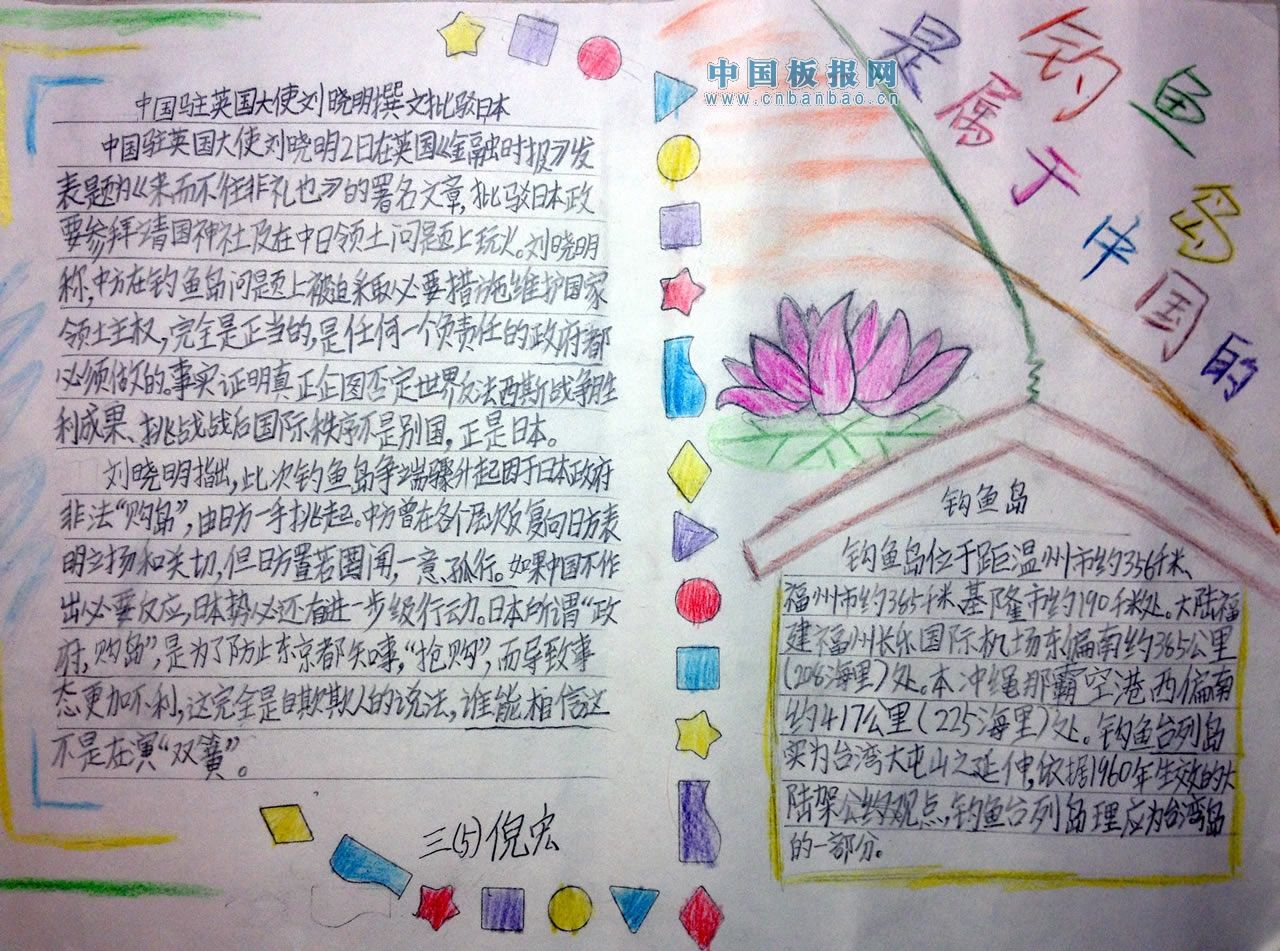 中国驻英国大使刘晓明撰文批驳日本
中国驻英国大使刘晓明2日在英国《金融时报》发
表题为《来而不往非礼也》的署名文章,批驳日本政
要参拜靖国神社及在中日领土问题上玩火。刘晓明
称,中方在钓鱼岛问题上被迫采取必要措施维护国家
领土主权,完全是正当的,是任何一个负责任的政府都
必须做的。事实证明真正企图否定世界反法西斯战争胜
利成果、挑战战后国际秩序不是别国,正是日本。
刘晓明指出,此次钓鱼岛争端骤升起因于日本政府
非法“购岛”,由日方一手挑起。中方曾在各个层次反复向日方表
明立场和关切,但日方置若罔闻,一意孤行。如果中国不作
出必要反应,日本势必还有进一步级行动。日本所谓“政
府,购岛”,是为了防止东京都知事,“抢购”,而导致事
态更加不利,这完全是自欺欺人的说法,谁能相信这
不是在演“双簧”。
三(5)倪宏
中国板报网
www.cnbanbao.cn
钓鱼岛
是属于中国的
钓鱼岛
钓鱼岛位于距温州市约356千米、
福州市约385千米、基隆市约190千米处。大陆福
建福州长乐国际机场东偏南约385公里
(208海里)处。本冲绳那霸空港西偏南
约417公里(225海里)处。钓鱼台列岛
实为台湾大屯山之延伸,依据1960年生效的大
陆架公约观点,钓鱼台列岛理应为台湾岛
的一部分。